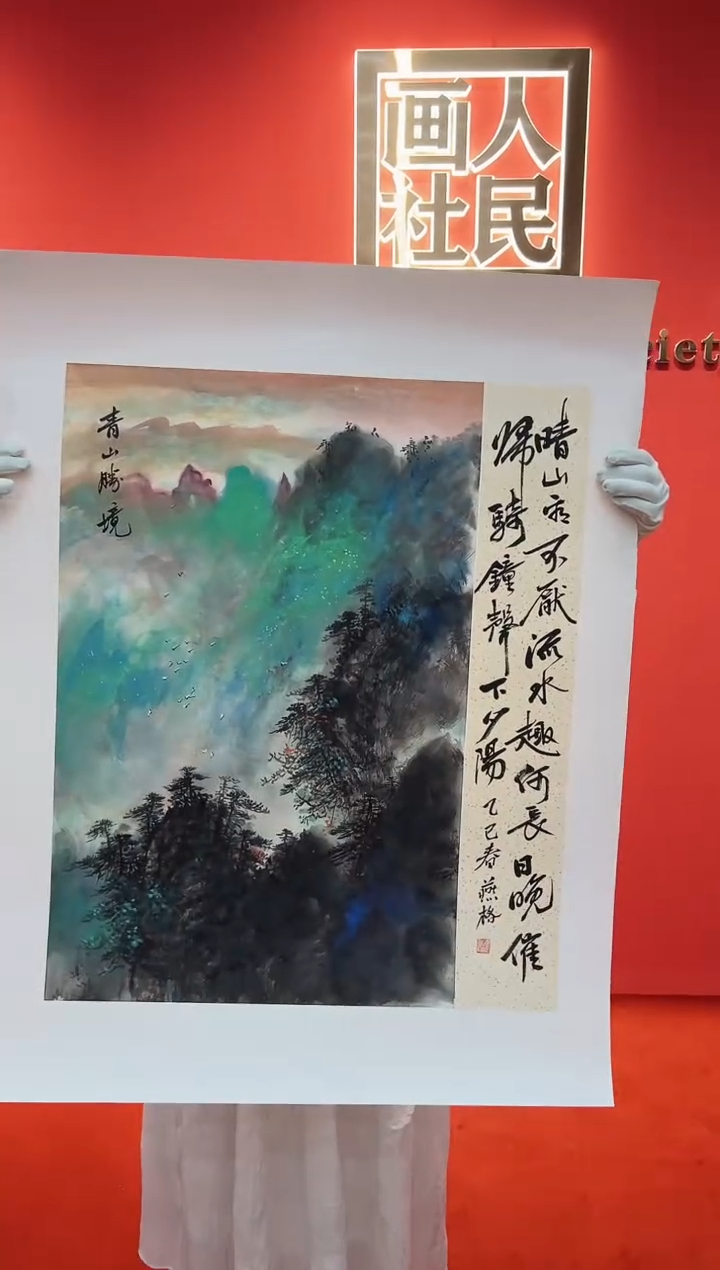 人民
画社
ciet
青山勝境
晴山看不厭流水趣何長日晚催
帰騎鐘聲下夕陽
乙巳春燕